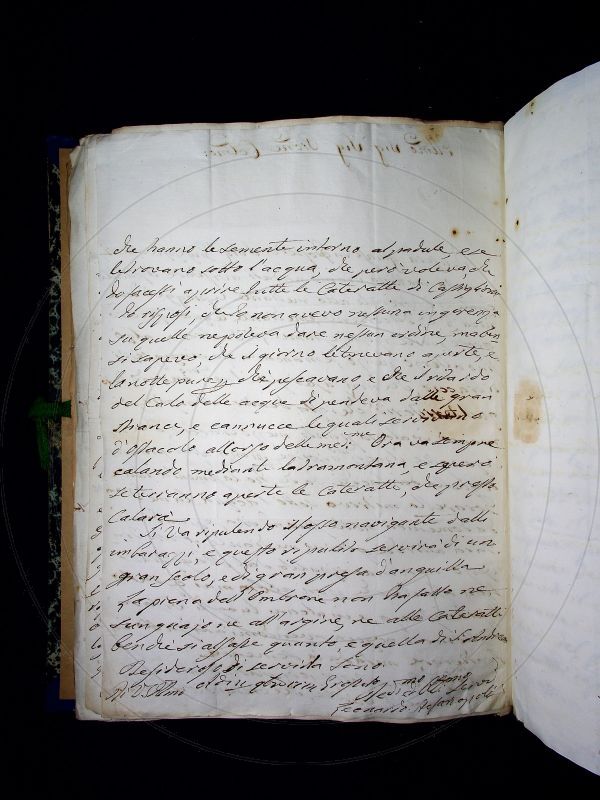 che hanno le semente intorno al padule, e se
le trovano sotto l'acqua, che però voleva che
io facessi aprire tutte le Cateratte di
Io risposi, che Io non avevo nessuna ingerenza
su quelle ne poteva dare nessun ordine, ma ben
si sapevo, che il giorno le tenevano aperte, e
la notte pure che pescavano e che il ritardo
del Calo delle acque dipendeva dalle gran
e cannucce le quali
d'ostacolo al corso delle med.me Ora va sempre
calando mediante la tramontana, e spero
se terranno aperte le Cateratte, che presto
Calarà
Si va ripulendo il fosso navigante dalli
imbarazzi, e questo ripulito servirà di un
gran scolo, e di gran presa d'anguilla
La piena dell'Ombrone non ha fatto ne
sun guajo ne all'argine, ne alle Cateratte
benche si alzasse quanto, e quella di S. Andrea
Desideroso di servirla sono
Di V. S. Ill.ma
Leonardo